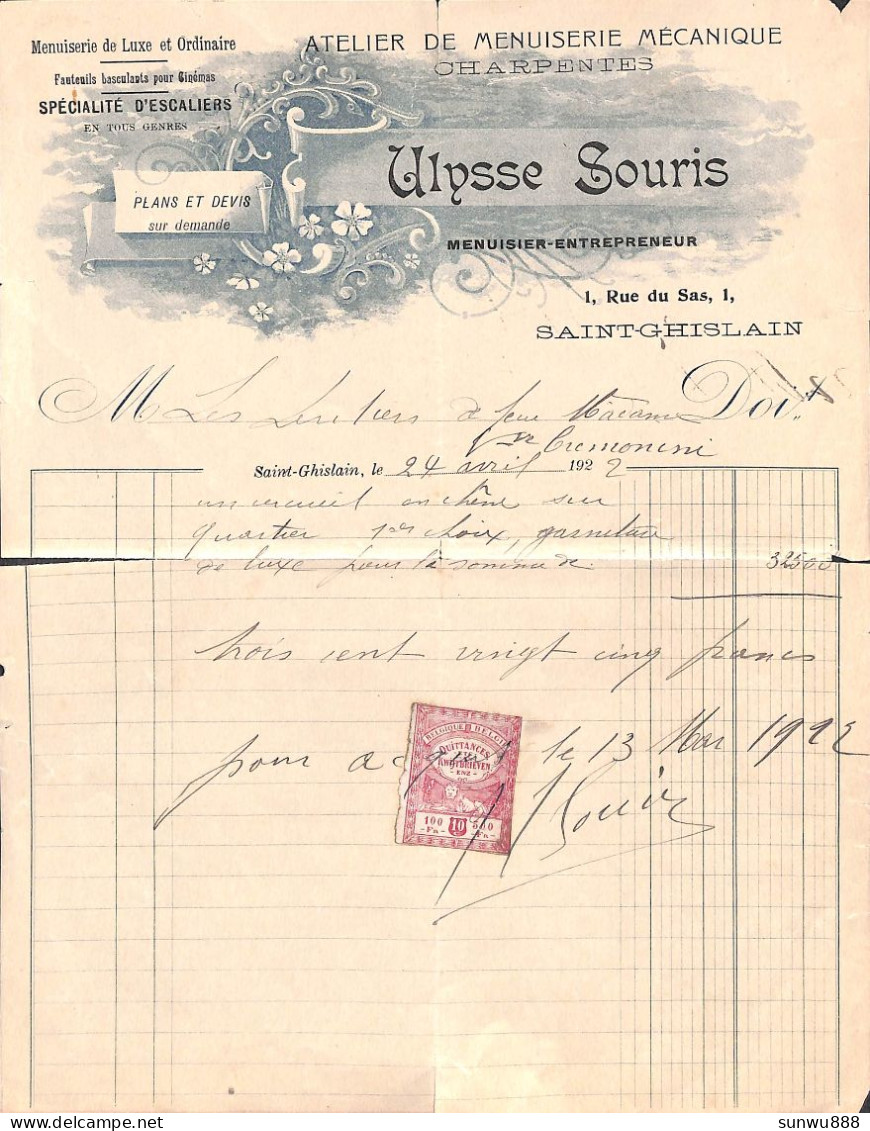 Menuiserie de Luxe et Ordinaire
Fauteuils basculants pour Cinémas
SPÉCIALITÉ D'ESCALIERS
EN TOUS GENRES
PLANS ET DEVIS
sur demande
ATELIER DE MENUISERIE MÉCANIQUE
CHARPENTES
Ulysse Souris
MENUISIER-ENTREPRENEUR
1, Rue du Sas, 1,
SAINT-GHISLAIN
M Les héritiers de feue Madame Doit
Vve Cremonini
Saint-Ghislain, le 24 avril 1922
un cercueil en chêne sur
quartier 1er choix, garniture
de luxe pour la somme de 325 00
trois cent vingt cinq francs
pour acquit le 13 Mai 1922
U Souris
BELGIQUE BELGIE
QUITTANCES
ETC
KWIJTBRIEVEN
ENZ
100 10 500
-Fr- -Fr-
sunwu888